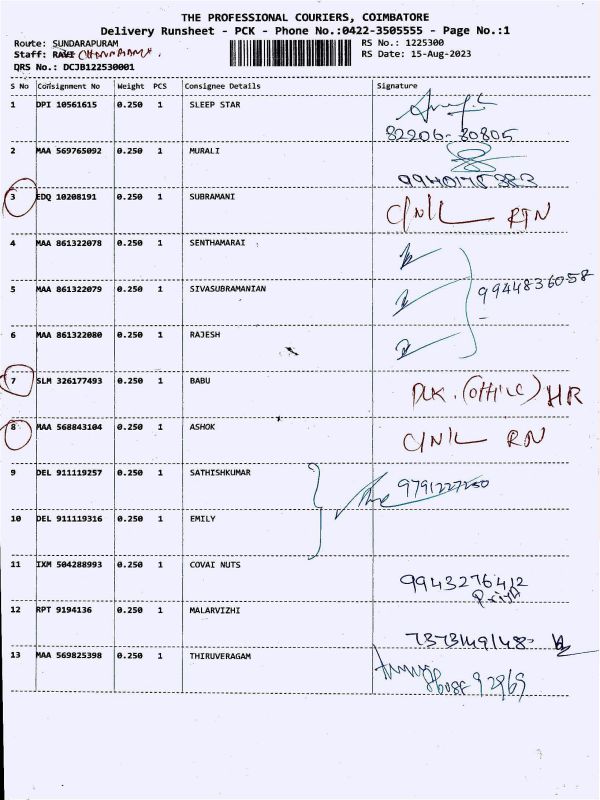 THE PROFESSIONAL COURIERS, COIMBATORE
Delivery Runsheet - PCK - Phone No.:0422-3505555 - Page No.:1
Route: SUNDARAPURAM
RS No.: 1225300
Staff: RAVI
RS Date: 15-Aug-2023
DRS No.: DCJB122530001
S No Consignment No Weight PCS Consignee Details Signature
1 DPI 10561615 0.250 1 SLEEP STAR
82206-80805
2 MAA 569765092 0.250 1 MURALI
9940175383
3 EDQ 10208191 0.250 1 SUBRAMANI C/N/L RTN
4 MAA 861322078 0.250 1 SENTHAMARAI
5 MAA 861322079 0.250 1 SIVASUBRAMANIAN 9944836058
6 MAA 861322080 0.250 1 RAJESH
7 SLM 326177493 0.250 1 BABU (office) HR
8 MAA 568843104 0.250 1 ASHOK C/N/L RN
9 DEL 911119257 0.250 1 SATHISHKUMAR 9791227250
10 DEL 911119316 0.250 1 EMILY
11 IXM 504288993 0.250 1 COVAI NUTS
9943276412
Priya
12 RPT 9194136 0.250 1 MALARVIZHI
7373149148
13 MAA 569825398 0.250 1 THIRUVERAGAM